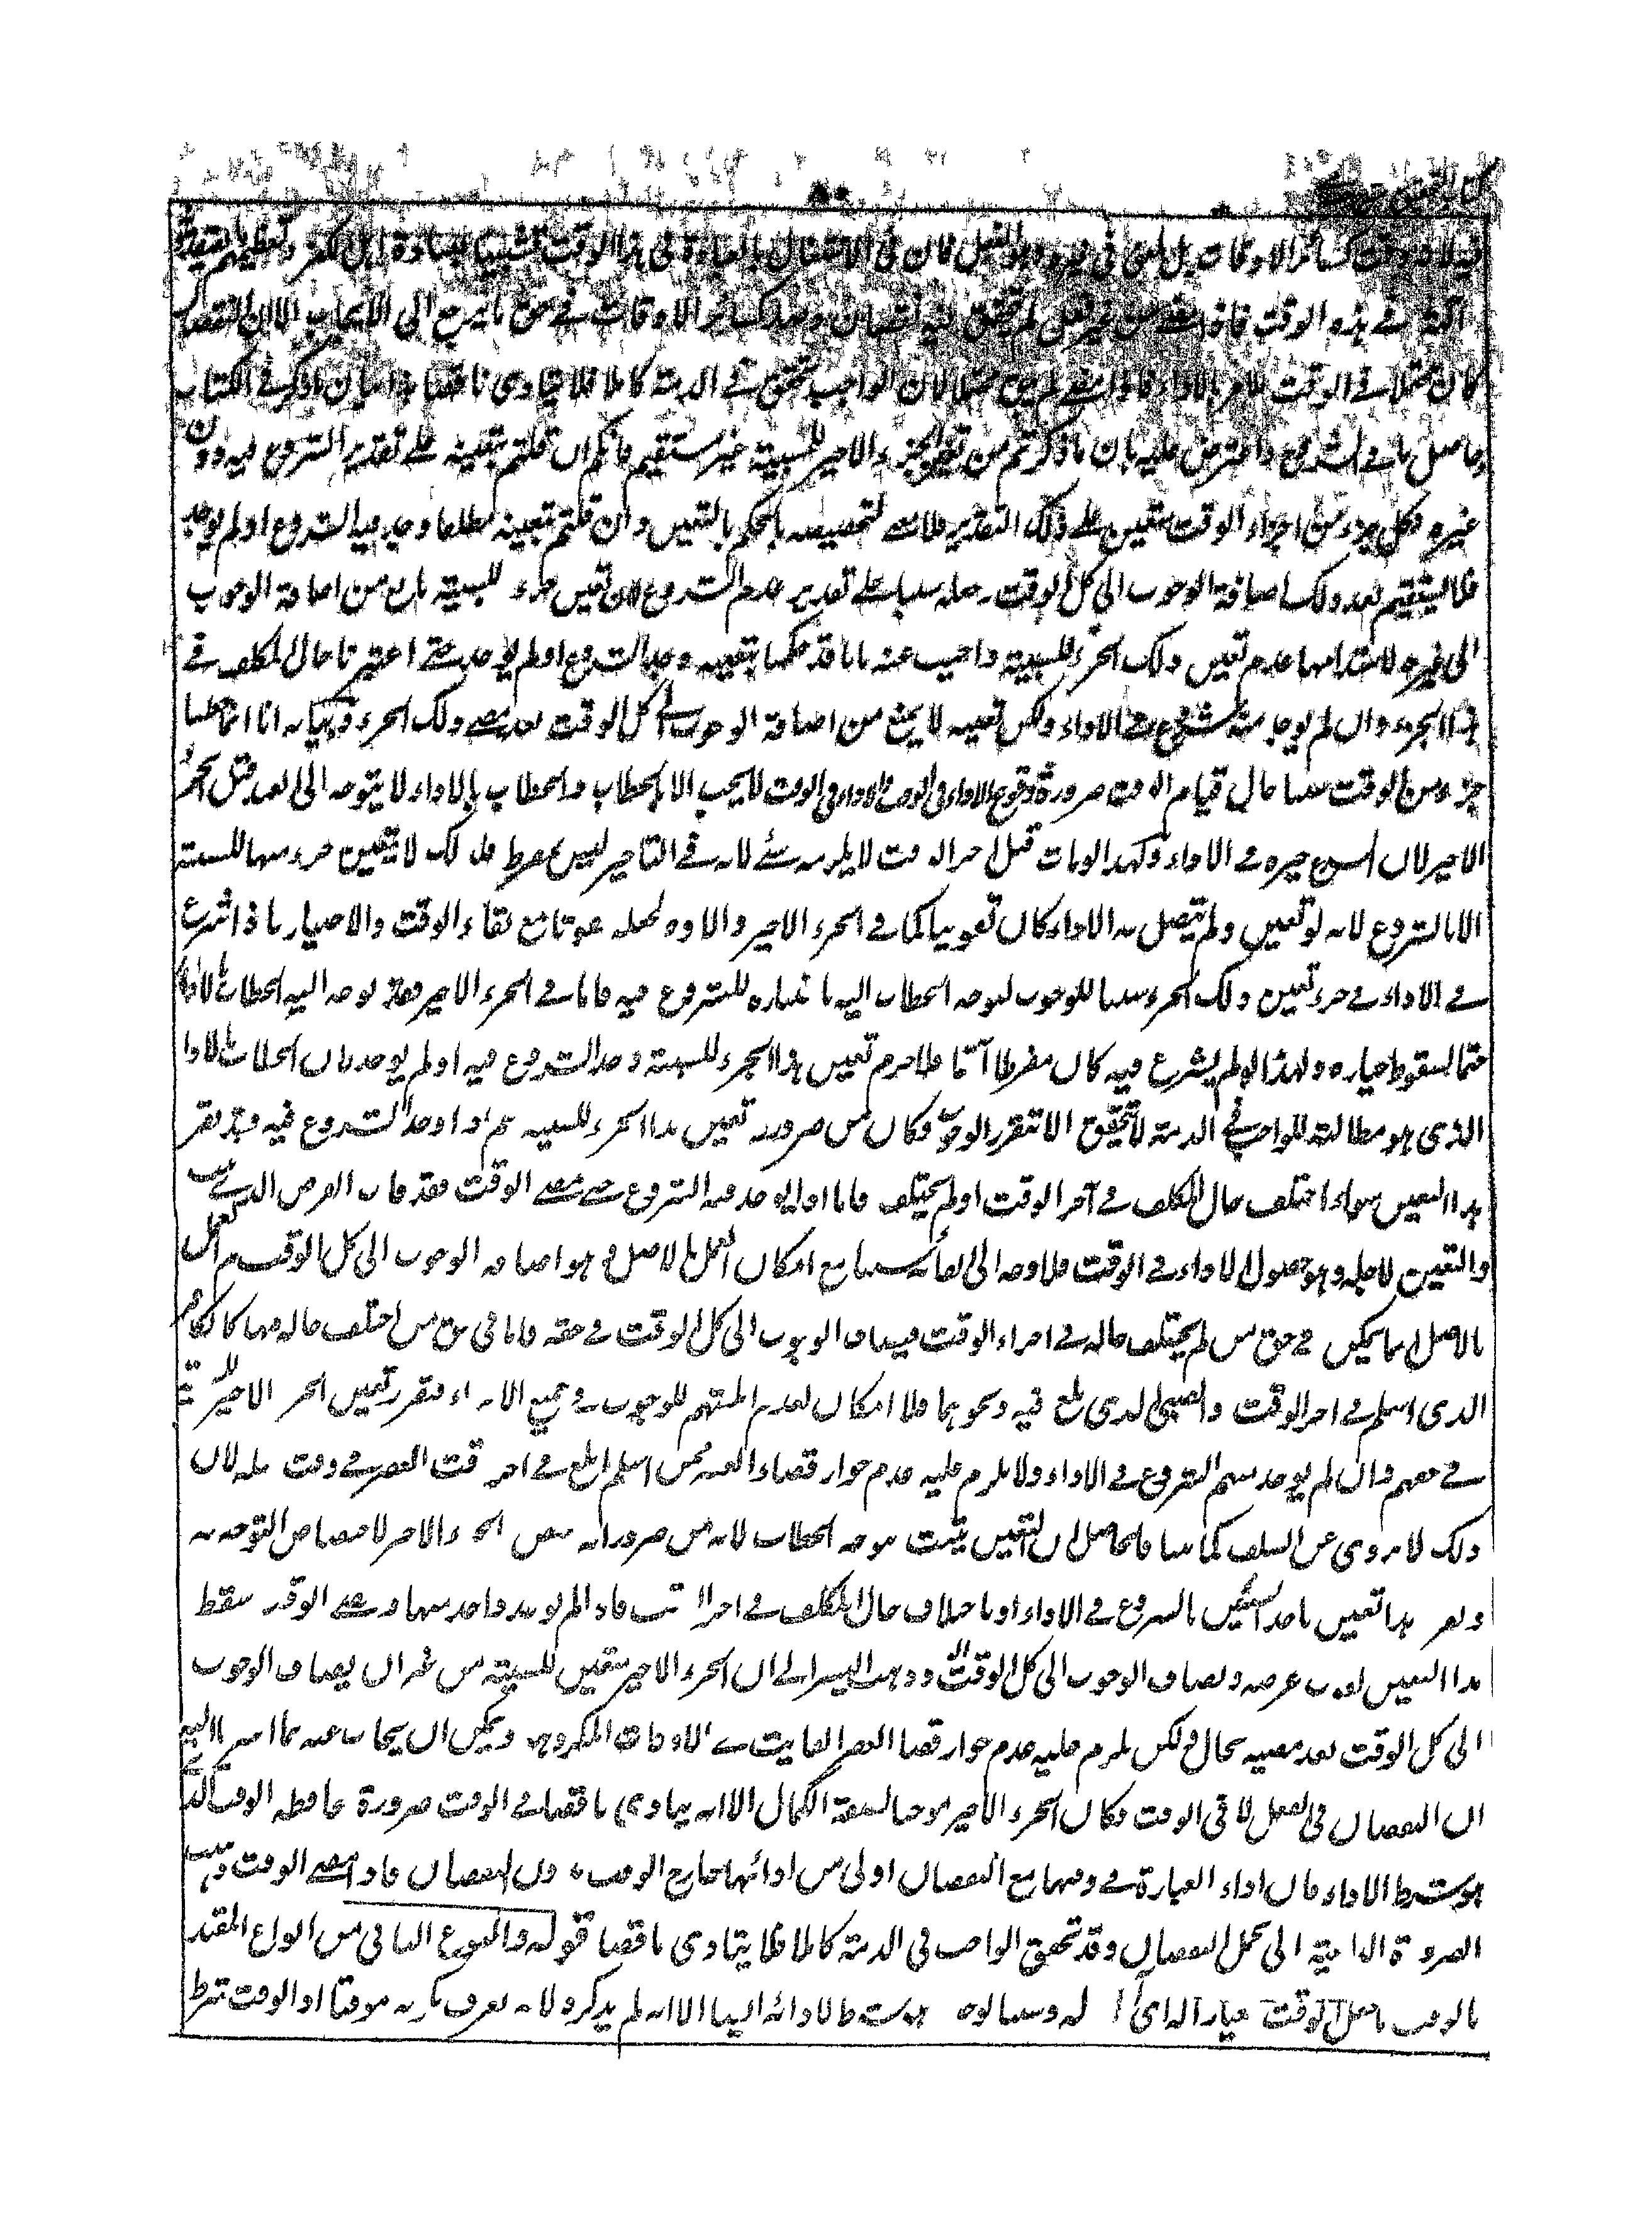 لانه وقت كسائر الاوقات بل فى الفعل فان فى الاشتغال بالعبادة فى هذا الوقت تشبيها بعبادة اهل الكفر وتعظيمهم
فى هذه الوقت فاذا مضى من غير فعل لم يتحقق كسائر الاوقات فى حق ما يرجع الى الايجاب الا ان النقصان
كان محتملا فى الوقت للامر بالاداء فاذا مضى لم يبق محتملا لان الواجب تحقق فى الذمة كاملا فلا يتادى ناقصا هذا بيان ما ذكر فى الكتاب
وحاصل ما واعترض عليه بان ما ذكرتم من تعين الجزء الاخير للسببية غير مستقيم فانكم ان قلتم بتعينه على تقدير الشروع فيه دون
غيره فكل جزء من اجزاء الوقت متعين على ذلك التقدير فلا معنى لتخصيصه بالحكم بالتعين وان قلتم بتعينه مطلقا وجد فيه الشروع او لم يوجد
فلا يستقيم بعد ذلك اضافة الوجوب الى كل الوقت وجعله سببا على تقدير عدم الشروع لان تعين جزء للسببية مانع من اضافة الوجوب
الى غيره لاستدامها عدم تعين ذلك الجزء للسببية واجيب عنه بانا قد حكمنا بتعينه وجد الشروع او لم يوجد حتى اعتبرنا حال المكلف فى
هذا الجزء وان لم يوجد منه شروع فى الاداء ولكن تعينه لا يمنع من اضافة الوجوب الى كل الوقت بعد مضى ذلك الجزء وبيانه انا انما جعلنا
جزء من الوقت سببا حال قيام الوقت ضرورة وقوع الاداء فى الوقت والاداء فى الوقت لا يجب الا بالخطاب والخطاب بالاداء لا يتوجه الى العبد قبل الجزء
الاخير لان الشرع خيره فى الاداء ولهذا لو مات قبل اخر الوقت لا يلزمه شئ لانه فى التاخير ليس بمفرط فلذلك لا يتعين جزء منها للسببية
الا بالشروع لانه لو تعين ولم يتصل به الاداء كان تفويتا كما فى الجزء الاخير ولا وجه لجعله مفوتا مع بقاء الوقت والاختيار فاذا شرع
فى الاداء فى جزء تعين ذلك الجزء سببا للوجوب لتوجه الخطاب اليه باعتباره للشروع فيه فاما فى الجزء الاخير فقد توجه اليه الخطاب بالاداء
حتما لسقوط خياره ولهذا لو لم يشرع فيه كان مفرطا آثما فلا جرم تعين هذا الجزء للسببية وجد الشروع فيه او لم يوجد لان الخطاب بالاداء
الذى هو مطالبة للواجب فى الذمة لا يتحقق الا بتقرر الوجوب وكان من ضرورته تعين هذا الجزء للسببية ثم اذا وجد الشروع فيه وقد تقرر
هذا التعين سواء اختلف حال المكلف فى آخر الوقت او لم يختلف فاما اذا لم يوجد فيه الشروع حتى مضى الوقت فقد فات الغرض الذى يثبت
والتعين لاجله وهو حصول الاداء فى الوقت فلا وجه الى ابقائه سببا مع امكان العمل بالاصل وهو اضافة الوجوب الى كل الوقت ثم العمل
بالاصل انما يمكن فى حق من لم يختلف حاله فى اجزاء الوقت فيضاف الوجوب الى كل الوقت فى حقه فاما فى حق من اختلف حاله فيها كالكافر
الذى اسلم فى اخر الوقت والصبى الذى بلغ فيه ونحوهما فلا امكان لعدم اهليتهم للوجوب فى جميع الاجزاء فتقرر تعين الجزء الاخير للسببية
فى حقهم وان لم يوجد منهم الشروع فى الاداء ولا يلزم عليه عدم جواز قضاء العصر ممن اسلم او بلغ فى اخر وقت العصر فى وقت مثله لان
ذلك لا يروى عن السلف كما بينا فالحاصل ان التعين يثبت بتوجه الخطاب لانه من ضروراته الجزء الاخير لاختصاص التوجه به
هذا التعين باحد الشيئين بالشروع فى الاداء او باختلاف حال المكلف فى اخر الوقت فاذا لم يوجد واحد منهما ومضى الوقت سقط
هذا التعين لفوت غرضه ويضاف الوجوب الى كل الوقت وذهب ابو اليسر الى ان الجزء الاخير متعين للسببية من غير ان يضاف الوجوب
الى كل الوقت بعد مضيه بحال ولكن يلزم عليه عدم جواز قضاء العصر الفايت فى الاوقات المكروهة ويمكن ان يجاب عنه بما اشير اليه
ان النقصان فى الفعل لا فى الوقت فكان الجزء الاخير موجبا لصفة الكمال الا انه يتادى ناقصا فى الوقت ضرورة محافظة الوقت الذى
هو شرط الاداء فان اداء العبادة فى وقتها مع النقصان اولى من ادائها خارج الوقت بدون النقصان فاذا مضى الوقت ذهبت
الضرورة الداعية الى تحمل النقصان وقد تحقق الواجب فى الذمة كاملا فلا يتادى ناقصا قوله والنوع الثانى من انواع المقيد
بالوقت ما جعل الوقت معيارا له اى له وسببا لوجوبه هو شرط لادائه ايضا الا انه لم يذكره لانه يعرف بكونه موقتا اذ الوقت شرط